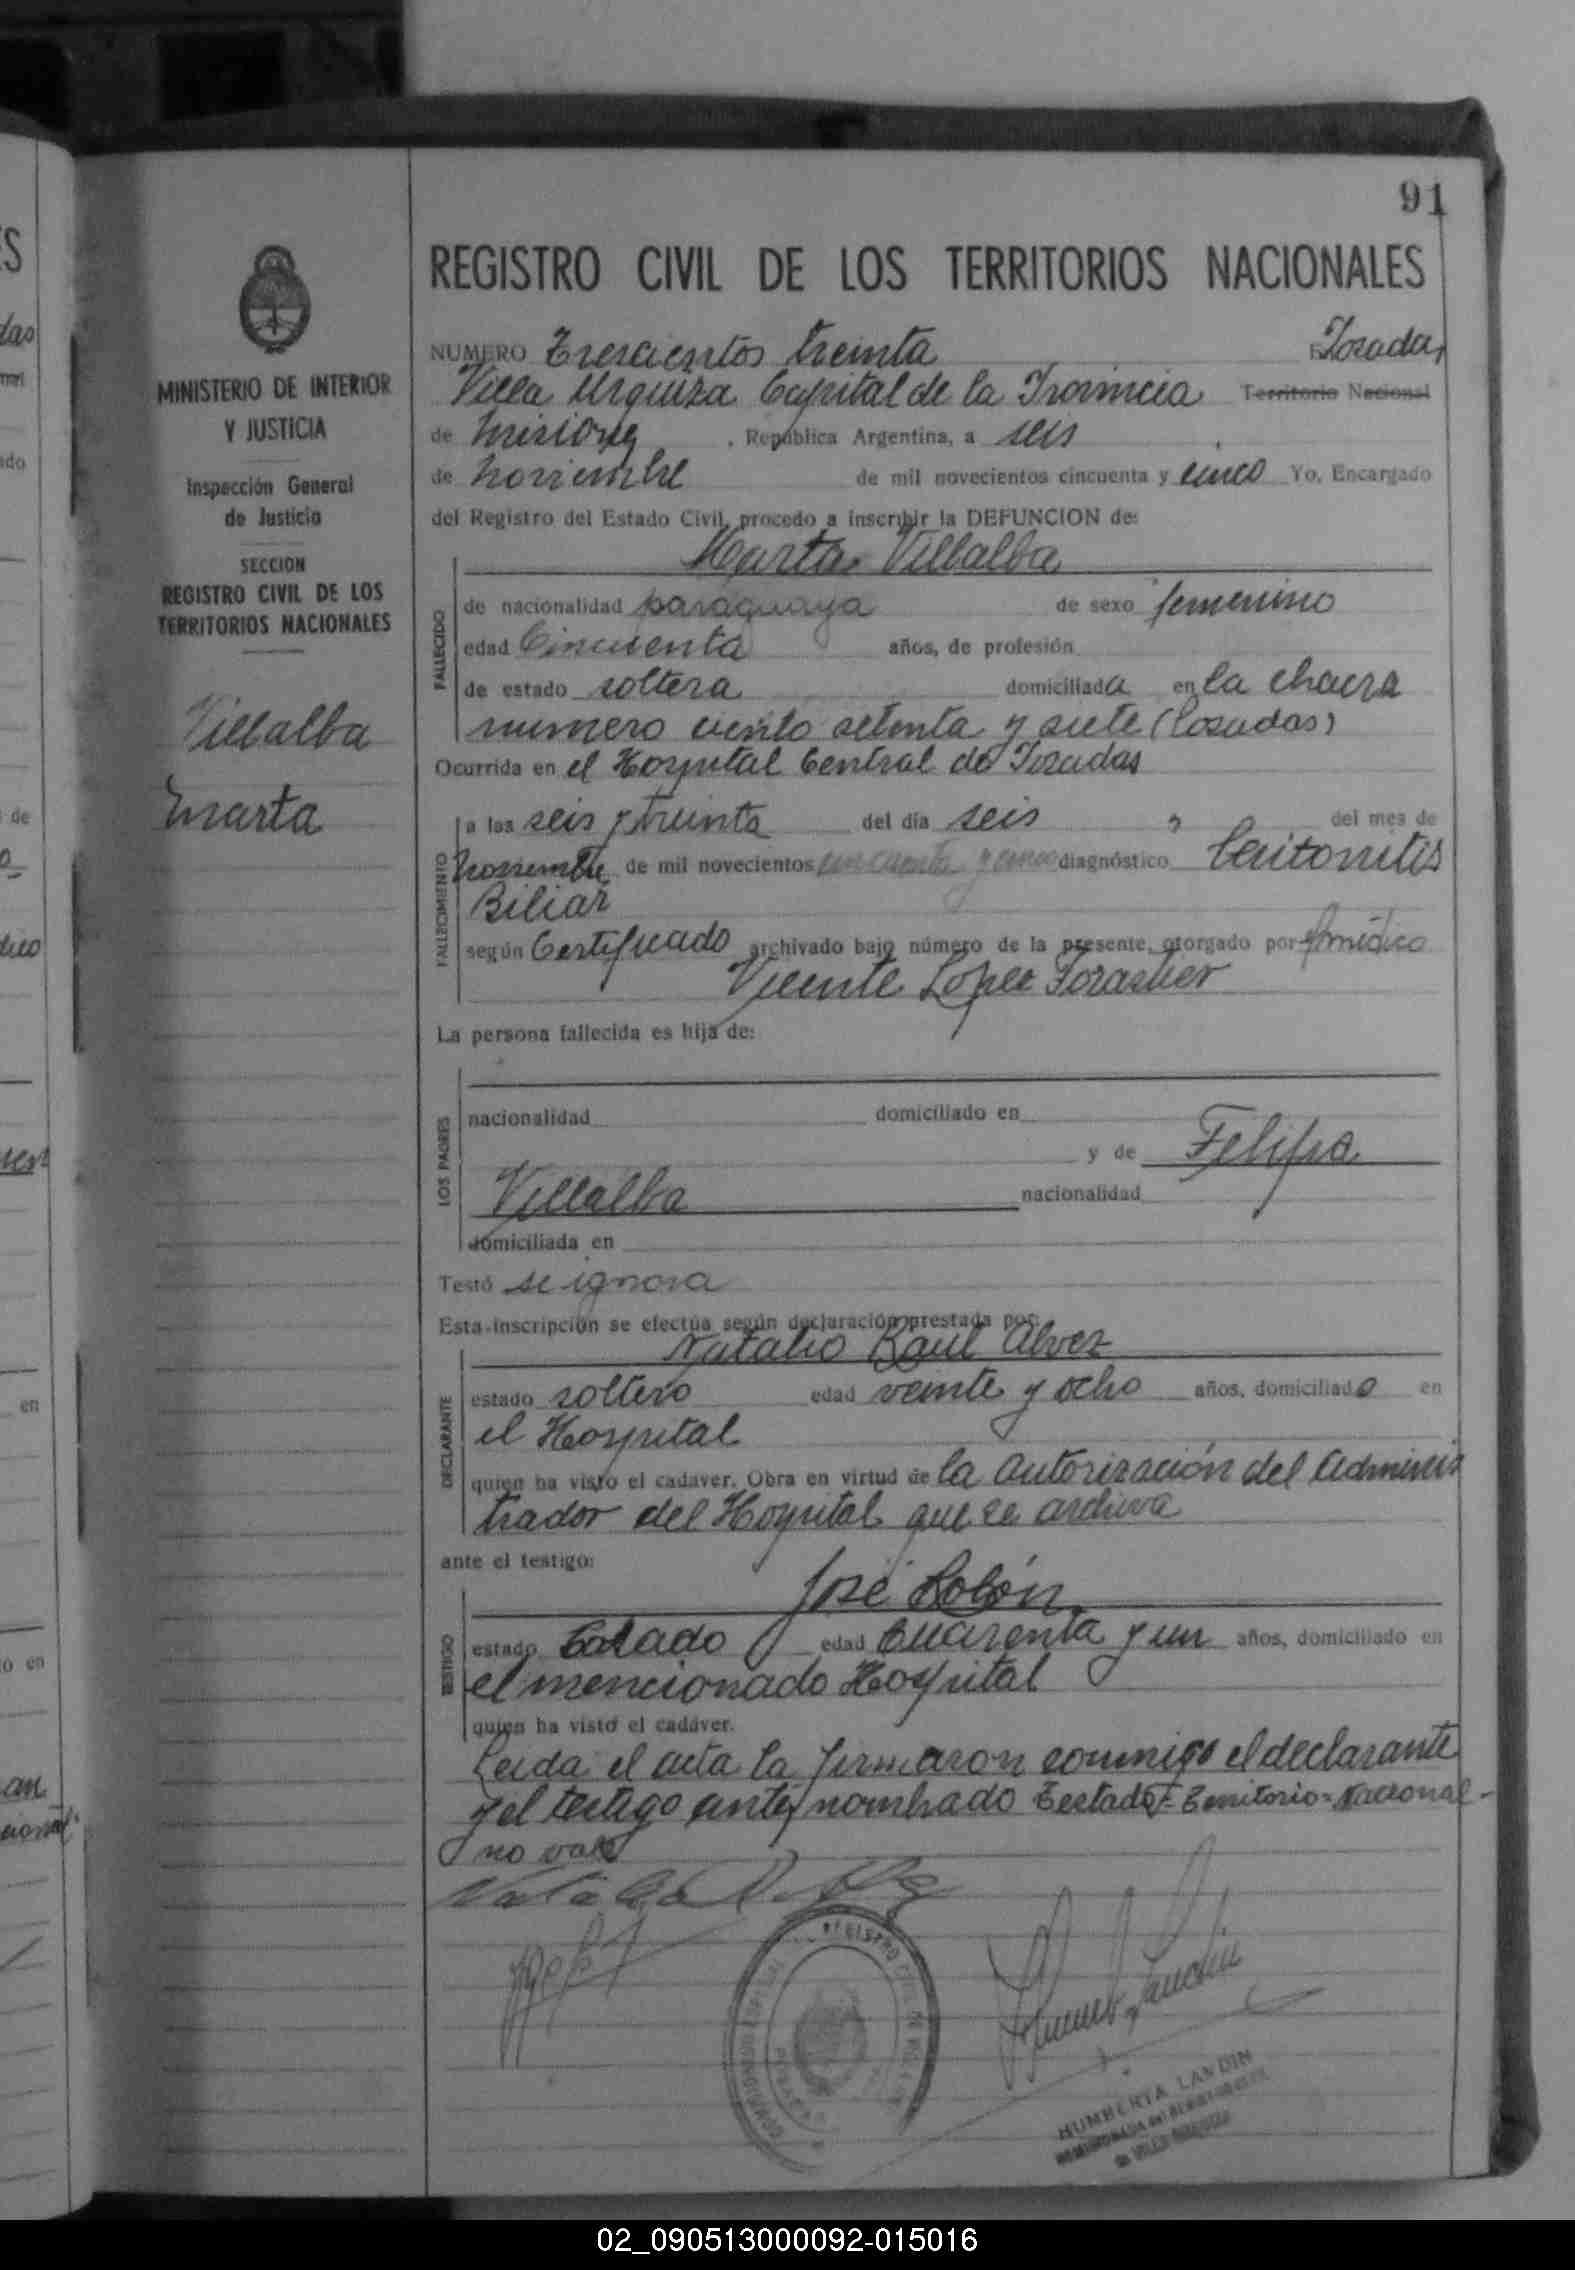 91
REGISTRO CIVIL DE LOS TERRITORIOS NACIONALES
MINISTERIO DE INTERIOR
Y JUSTICIA
Inspección General
de Justicia
SECCION
REGISTRO CIVIL DE LOS
TERRITORIOS NACIONALES
Villalba
Marta
NUMERO Trescientos treinta Posadas,
Villa Urquiza Capital de la Provincia Territorio Nacional
de Misiones, República Argentina, a seis
de Noviembre de mil novecientos cincuenta y cinco Yo, Encargado
del Registro del Estado Civil, procedo a inscribir la DEFUNCION de:
Marta Villalba
FALLECIDO
de nacionalidad paraguaya de sexo femenino
edad Cincuenta años, de profesión
de estado soltera domiciliada en la chacra
numero ciento setenta y siete (Posadas)
Ocurrida en el Hospital Central de Posadas
FALLECIMIENTO
a las seis y treinta del día seis del mes de
Noviembre de mil novecientos cincuenta y cinco diagnóstico Peritonitis
Biliar
según Certificado archivado bajo número de la presente, otorgado por el médico
Vicente Lopez Forastier
La persona fallecida es hija de:
LOS PADRES
nacionalidad domiciliado en
y de Felipa
Villalba nacionalidad
domiciliada en
Testó se ignora
Esta inscripción se efectúa según declaración prestada por:
Natalio Raul Alvez
DECLARANTE
estado soltero edad veinte y ocho años, domiciliado en
el Hospital
quien ha visto el cadaver. Obra en virtud de la autorización del Adminis
trador del Hospital que se archiva
ante el testigo:
José Lobón
TESTIGO
estado Casado edad Cuarenta y un años, domiciliado en
el mencionado Hospital
quien ha visto el cadáver.
Leida el acta la firmaron conmigo el declarante
y el testigo antes nombrado Testado= Territorio= Nacional-
no vale
REGISTRO CIVIL
POSADAS
HUMBERTA LANDIN
02_090513000092-015016